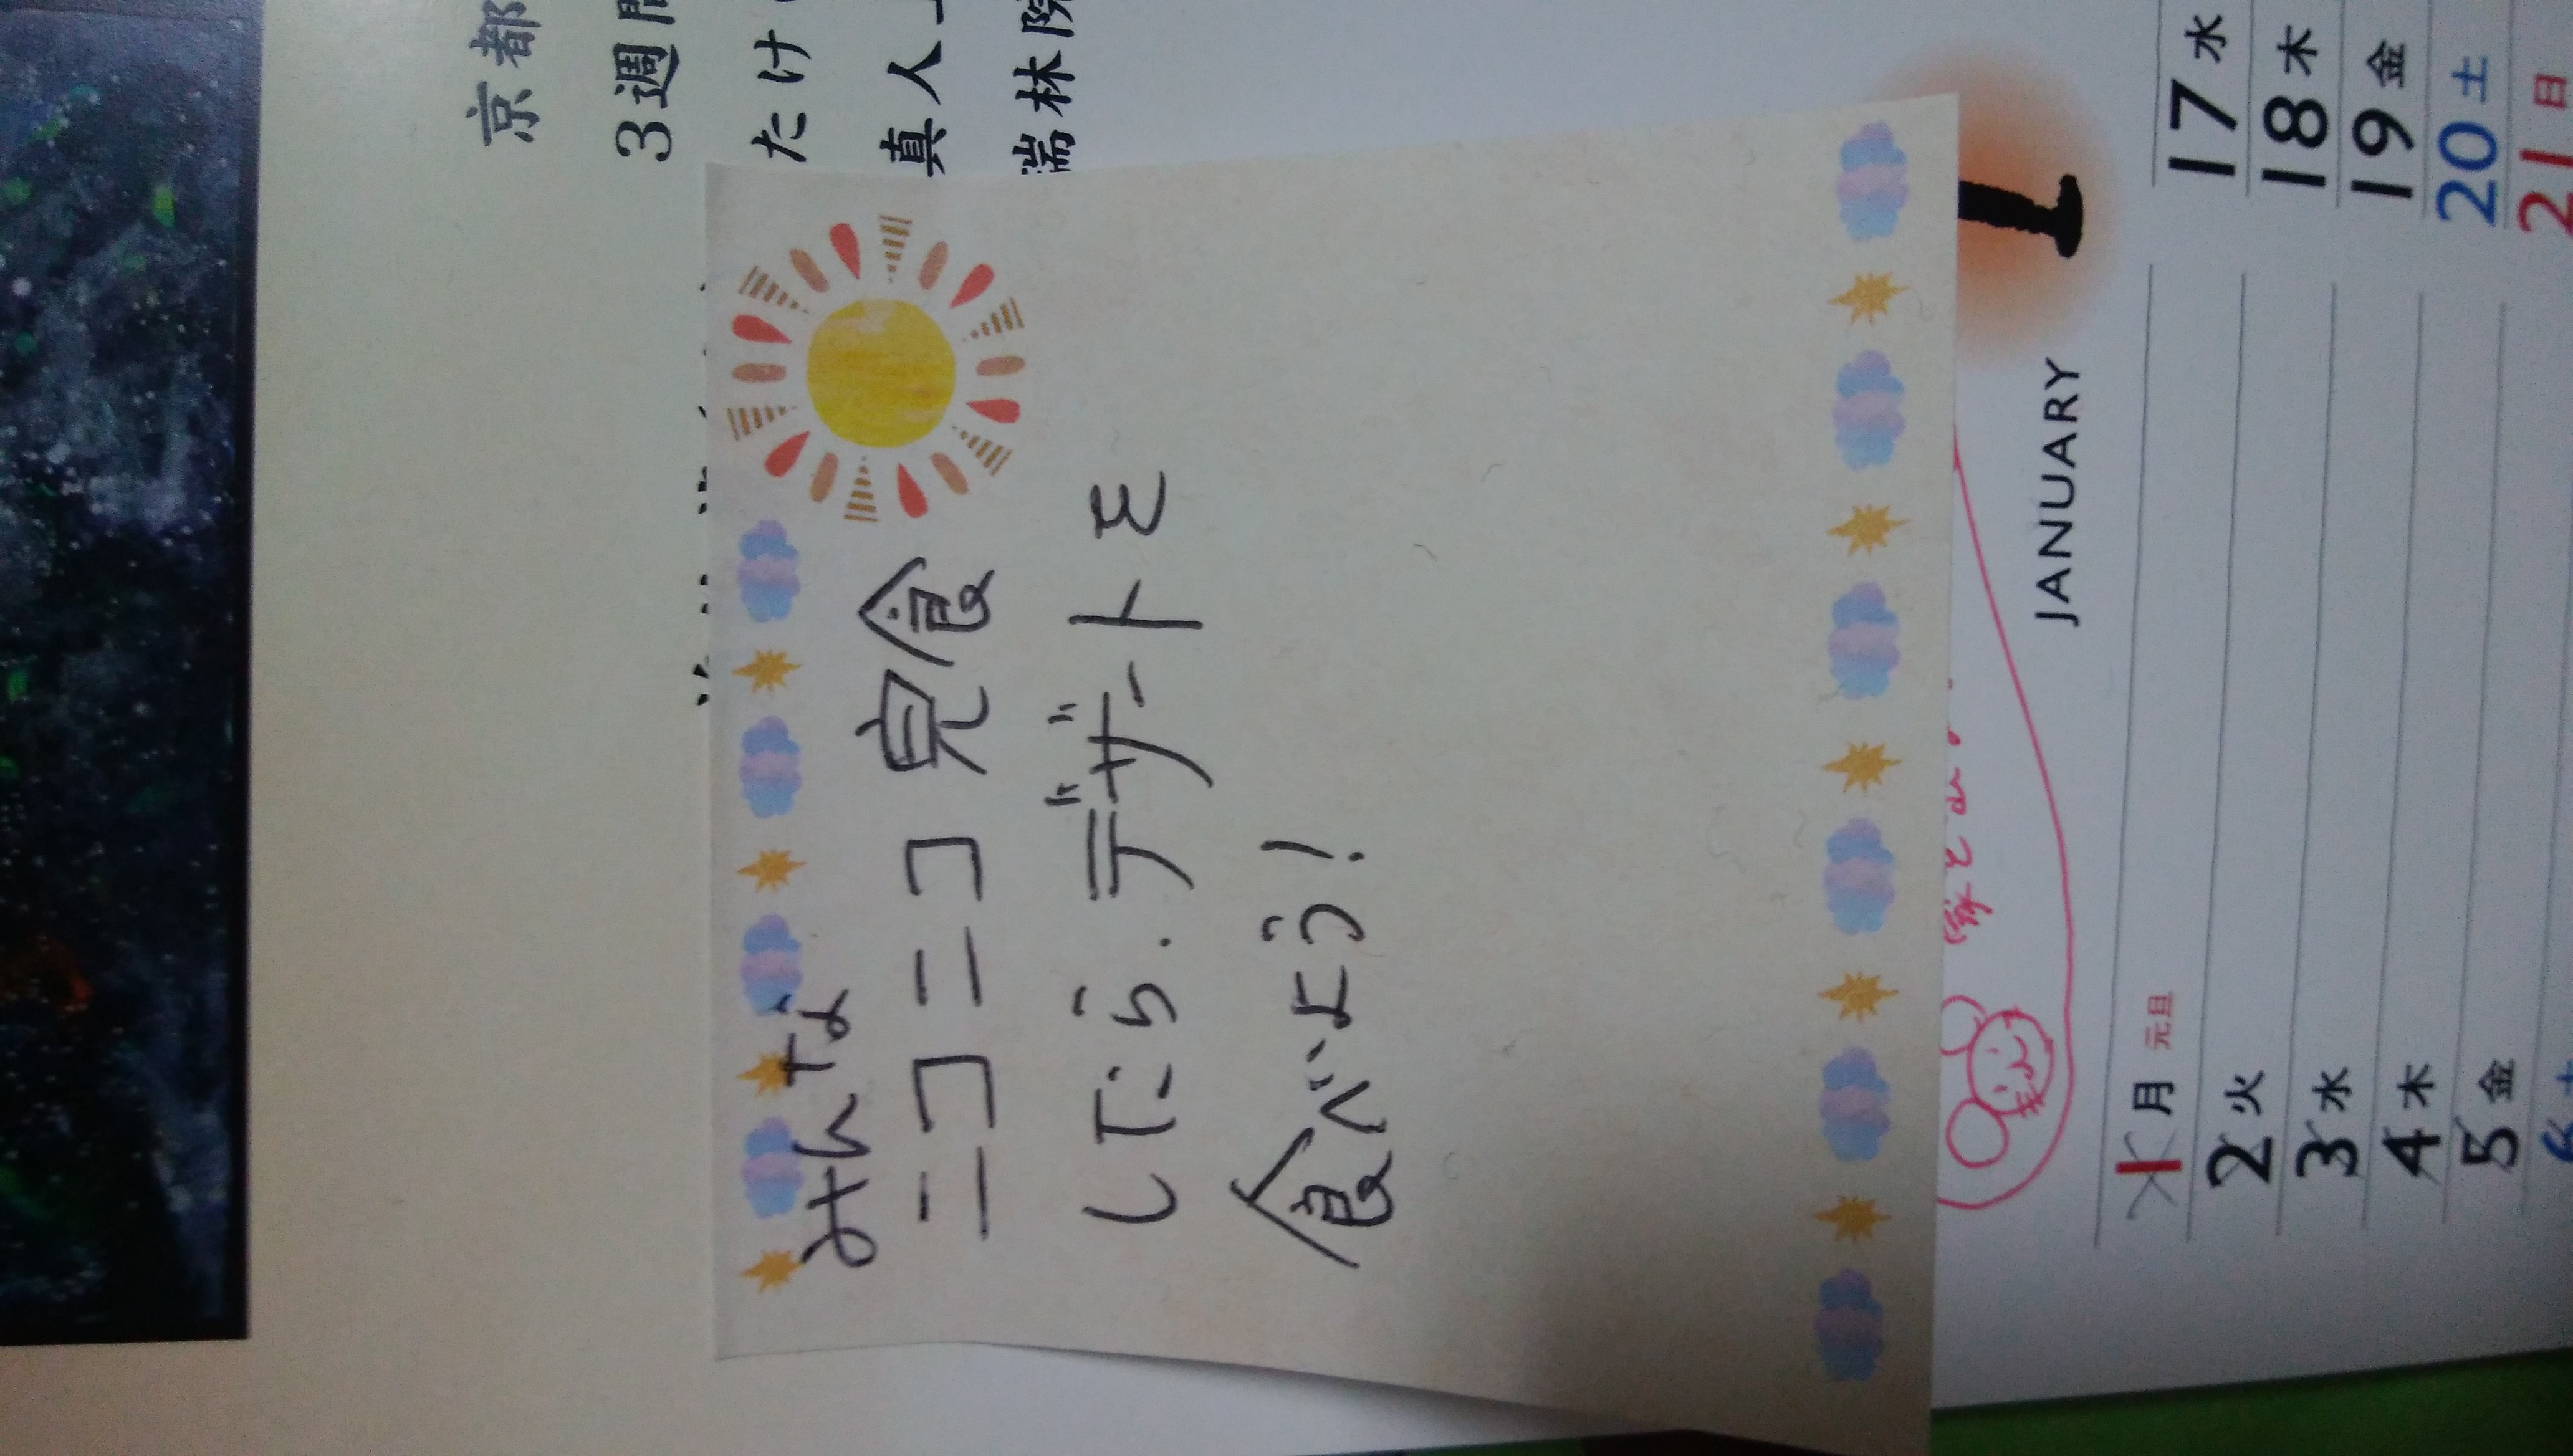 京都
3週間
たけ
真人
瑞林院
みんな
ニコニコ完食
したら、デザートを
食べよう!
1
JANUARY
1月 元旦
2火
3水
4木
5金
17水
18木
19金
20土
21日